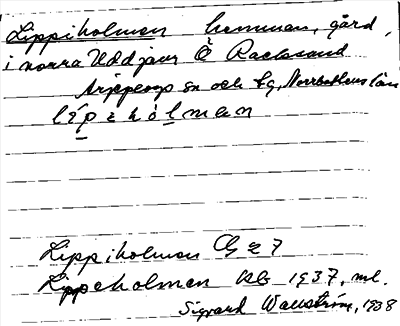 Lippiholmen hemman, gård,
i norra Uddjaur Ö Racksund
Arjeplogs sn och lg, Norrbottens län
Lippiholmen
Lippeholmen 1937, ml.
Sigvard Wallström, 1938